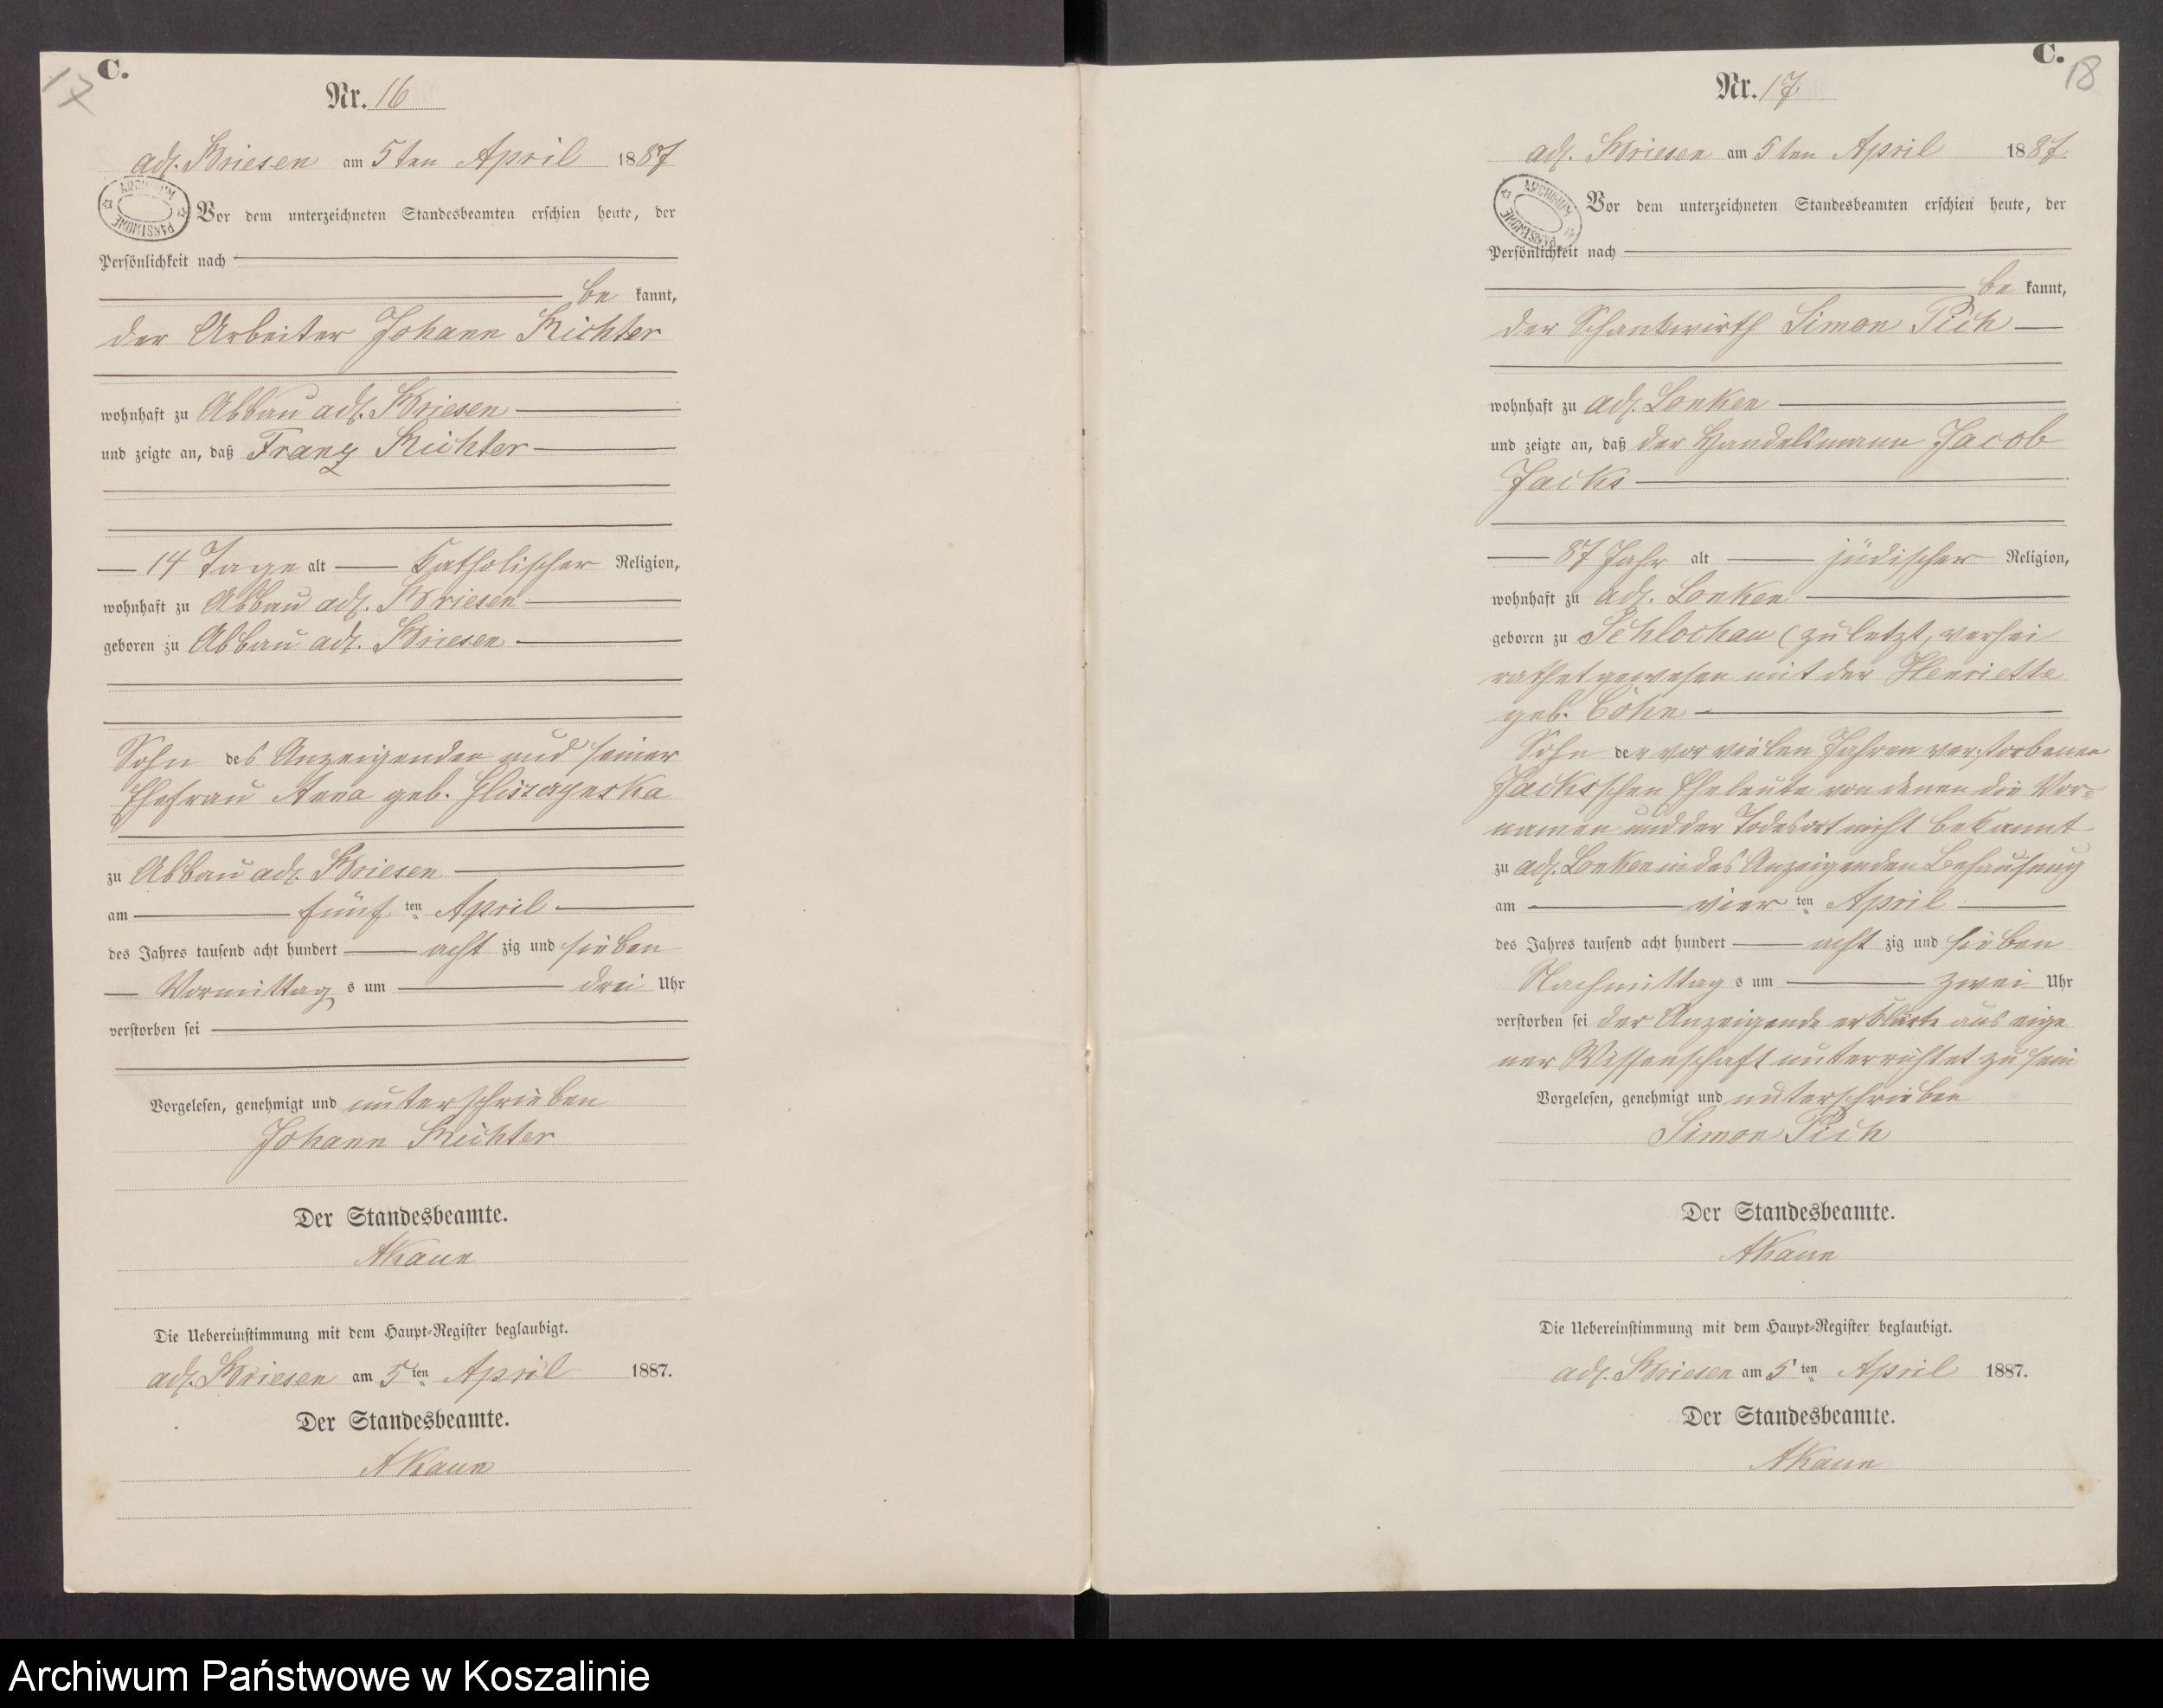 17
C.
Nr. 16
adl. Briesen am 5ten April 1887
ARCHIWUM PAŃSTWOWE
Vor dem unterzeichneten Standesbeamten erschien heute, der
Persönlichkeit nach
be kannt,
der Arbeiter Johann Richter
wohnhaft zu Abbau adl. Briesen
und zeigte an, daß Franz Richter
14 Tage alt Katholischer Religion,
wohnhaft zu Abbau adl. Briesen
geboren zu Abbau adl. Briesen
Sohn des Anzeigenden und seiner
Ehefrau Anna geb.
zu Abbau adl. Briesen
am fünf ten April
des Jahres tausend acht hundert acht zig und sieben
Vormittag s um drei Uhr
verstorben sei
Vorgelesen, genehmigt und unterschrieben
Johann Richter
Der Standesbeamte.
Die Uebereinstimmung mit dem Haupt-Register beglaubigt.
adl. Briesen am 5 ten April 1887.
Der Standesbeamte.
C.
18
Nr. 17
adl. Briesen am 5ten April 1887
ARCHIWUM PAŃSTWOWE
Vor dem unterzeichneten Standesbeamten erschien heute, der
Persönlichkeit nach
be kannt,
der Schankwirth Simon Pick
wohnhaft zu adl. Lonken
und zeigte an, daß der Handelsmann Jacob
Jacks
87 Jahr alt jüdischer Religion,
wohnhaft zu adl. Lonken
geboren zu Schlochau (zuletzt, verhei
rathet gewesen mit der Henriette
geb. Cohn
Sohn der vor vielen Jahren verstorbenen
Jacksschen Eheleute von denen die Vor=
namen und der Todesort nicht bekannt
zu adl. Lonken in des Anzeigenden Behausung
am vier ten April
des Jahres tausend acht hundert acht zig und sieben
Nachmittag s um zwei Uhr
verstorben sei der Anzeigende erklärte aus eige
ner Wissenschaft unterrichtet zu sein
Vorgelesen, genehmigt und unterschrieben
Simon Pick
Der Standesbeamte.
Die Uebereinstimmung mit dem Haupt-Register beglaubigt.
adl. Briesen am 5 ten April 1887.
Der Standesbeamte.
Archiwum Państwowe w Koszalinie